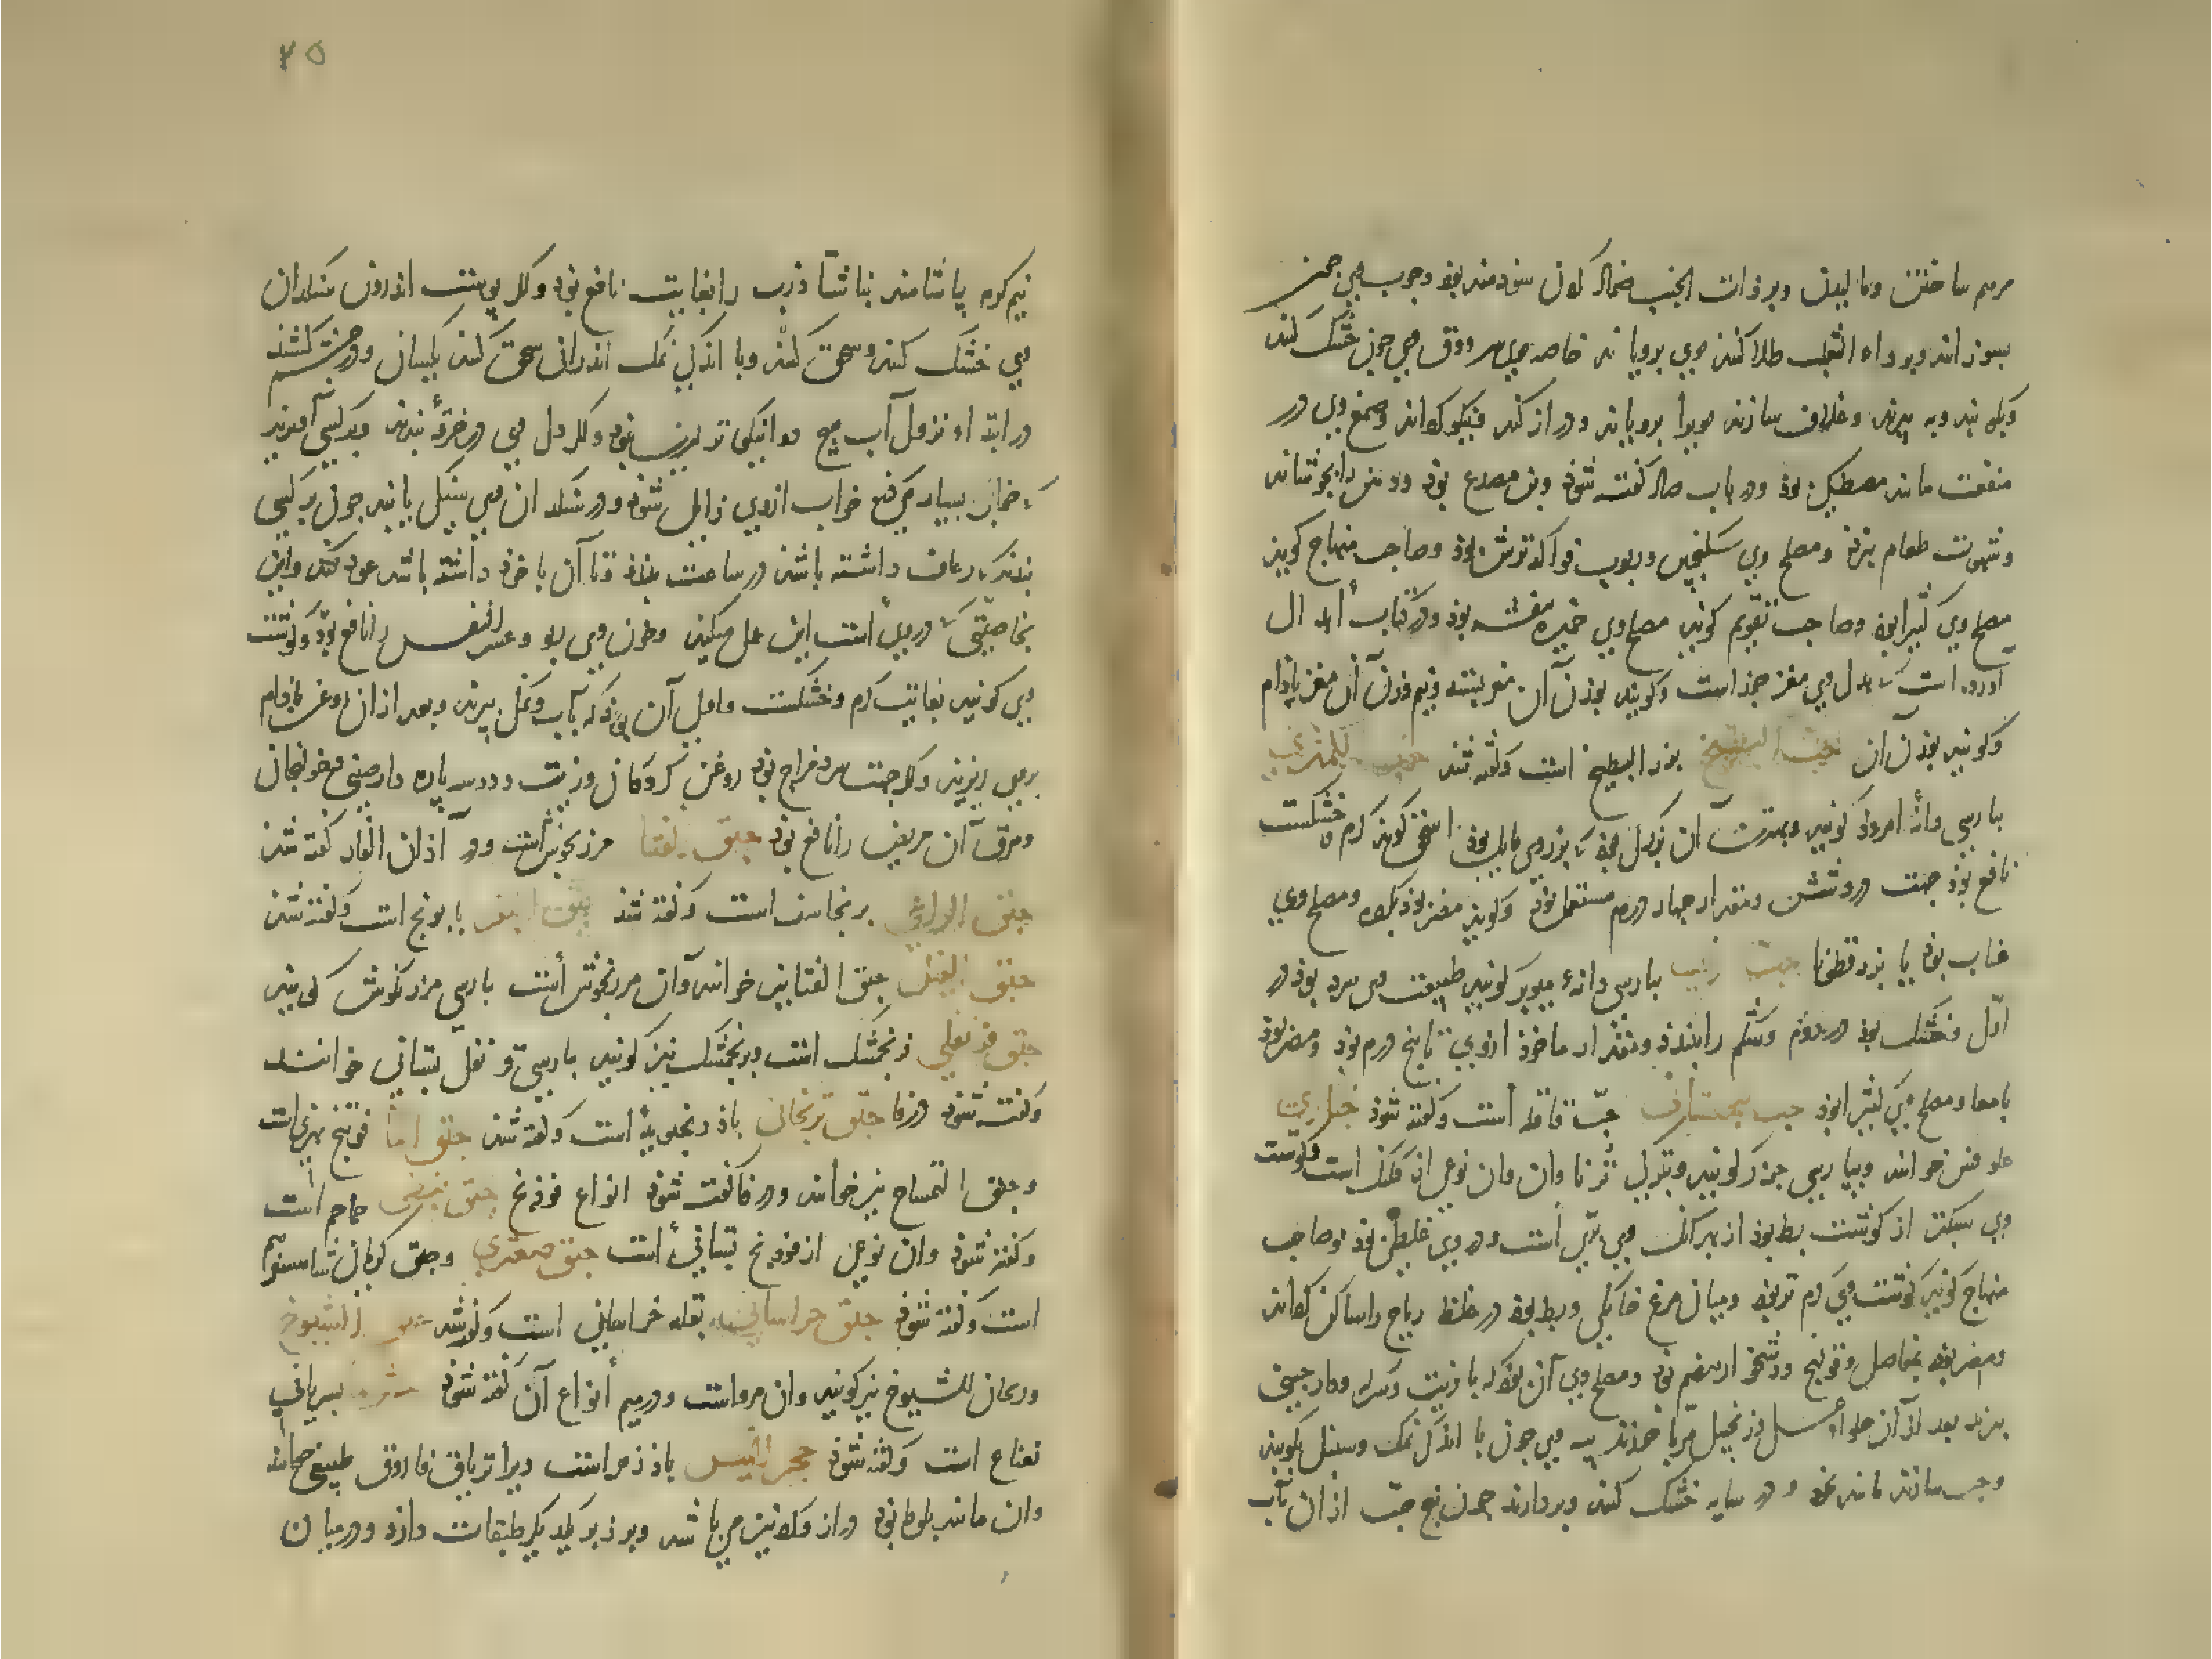 مرهم ساختن وماليدن وبر ذات الجنب ضماد کردن سودمند بود وچوب وی چون
بسوزانند وبر داء الثعلب طلا کنند موی برویاند خاصه ورق وی چون خشک کنند
وبکوبند وبه پزند وغلاف سازند مویرا برویاند ودراز کند ونیکو گرداند وصمغ وی در
منفعت مانند مصطکی بود ودر باب صاد گفته شود وی مصدع بود ودهن را بجوشاند
وشهوت طعام ببرد ومصلح وی سکنجبین وربوب فواکه ترش بود وصاحب منهاج گوید
مصلح وی کثیرا بود وصاحب تقویم گوید مصلح وی خمیره بنفشه بود ودر کتاب ابدال
آورده است که بدل وی مغز جوز است وگویند بوزن آن مغز پسته ونیم وزن آن مغز بادام
وگویند بوزن آن حب البطیخ بزر البطیخ است وگفته شد حب الکمثری
بپارسی دانه امرود گویند وبهترین آن بزرگ بود که بزردی مایل بود اسحق گوید گرم وخشکست
نافع بود جهت درد شش ومقدار چهار درم مستعمل بود وگویند مضر بود بگرده ومصلح وی
عناب بود یا بزرقطونا حب زبیب بپارسی دانه مویز گویند طبیعت وی سرد بود در
اول وخشک بود در دوم وشکم را ببندد ومقدار ماخوذ از وی تا پنج درم بود ومضر بود
بامعا ومصلح وی کثیرا بود حب حب قاقله است وگفته شود حباری
خوانند وبپارسی چرز گویند وبترکی وآن نوعی از کلنگ است وگوشت
وی سبکتر از گوشت بط بود از بهر آنک وی بری است ودر وی غلیظی بود وصاحب
منهاج گوید گوشت وی گرم تر بود ومیان مرغ خانگی وبط بود در غلظ ریاح را ساکن گرداند
ومضر بود بمفاصل وقولنج ودشخوار هضم بود ومصلح وی آن بود که با زیت وسرکه ودارچینی
بپزند بعد از آن حلواء عسل وزنجبیل مربا خورند پیه وی چون با اندکی نمک وسنبل بکوبند
وحب سازند مانند نخود ودر سایه خشک کنند وبردارند چون پنج حب از آن بآب
نیم گرم بیاشامند بناشتا ذرب را بغایت نافع بود واگر پوست اندرون سنگدان
وی خشک کنند وسحق کنند وبا اندکی نمک اندرانی سحق کنند یکسان ودر چشم کشند
در ابتداء نزول آب هیچ دوا نیکوتر ازین نبود واگر دل وی در خرقه بندند وبر کسی آویزند
که خواب بسیار کند خواب از وی زایل شود ودر سنگدان وی سنگی یابند چون بر کسی
بندند که رعاف داشته باشد در ساعت ببندد وتا آن با خود داشته باشد عود نکند واین
بخاصیتی که در وی است این عمل میکند وخون وی ربو وعسر النفس را نافع بود وگوشت
وی گویند بغایت گرم وخشکست واولی آن بود که بآب ونمک بپزند وبعد از آن روغن بادام
بر وی ریزند واگر جهت سرد مزاج بود روغن گردکان وزیت ودو سه پاره دارچینی وخولنجان
ومرق آن مریض را نافع بود حبق الفتا مرزنجوش است ودر آذان الفار گفته شد
حبق الراعی برنجاسف است وگفته شد حبق البقر بابونج است وگفته شد
حبق الفیل حبق الفتا نیز خوانند وآن مرزنجوش است بپارسی مرزنگوش گویند
حبق قرنفلی فرنجمشک است وبرنجمشک نیز گویند بپارسی قرنفل بستانی خوانند
وگفته شود در فا حبق ترنجانی بادرنجبویه است وگفته شد حبق الما فوتنج نهریست
وحبق التمساح نیز خوانند ودر فا گفته شود انواع فوذنج حبق نبطی حماحم است
وگفته شود وآن نوعی از فوذنج بستانی است حبق صعتری وحبق کرمانی شاهسفرم
است وگفته شود حبق خراسانی بقله خراسانی است وگفته شد حبق الشیوخ
وریحان الشیوخ نیز گویند وآن مرواست ودر میم انواع آن گفته شود بسریانی
نعناع است وگفته شود حجر التیس بادزهر است ویرا تریاق فاروق طبیعی خوانند
وآن مانند بلوطی بود دراز وگرد نیز می باشد وبر زبر یکدیگر طبقات دارد ودر میان